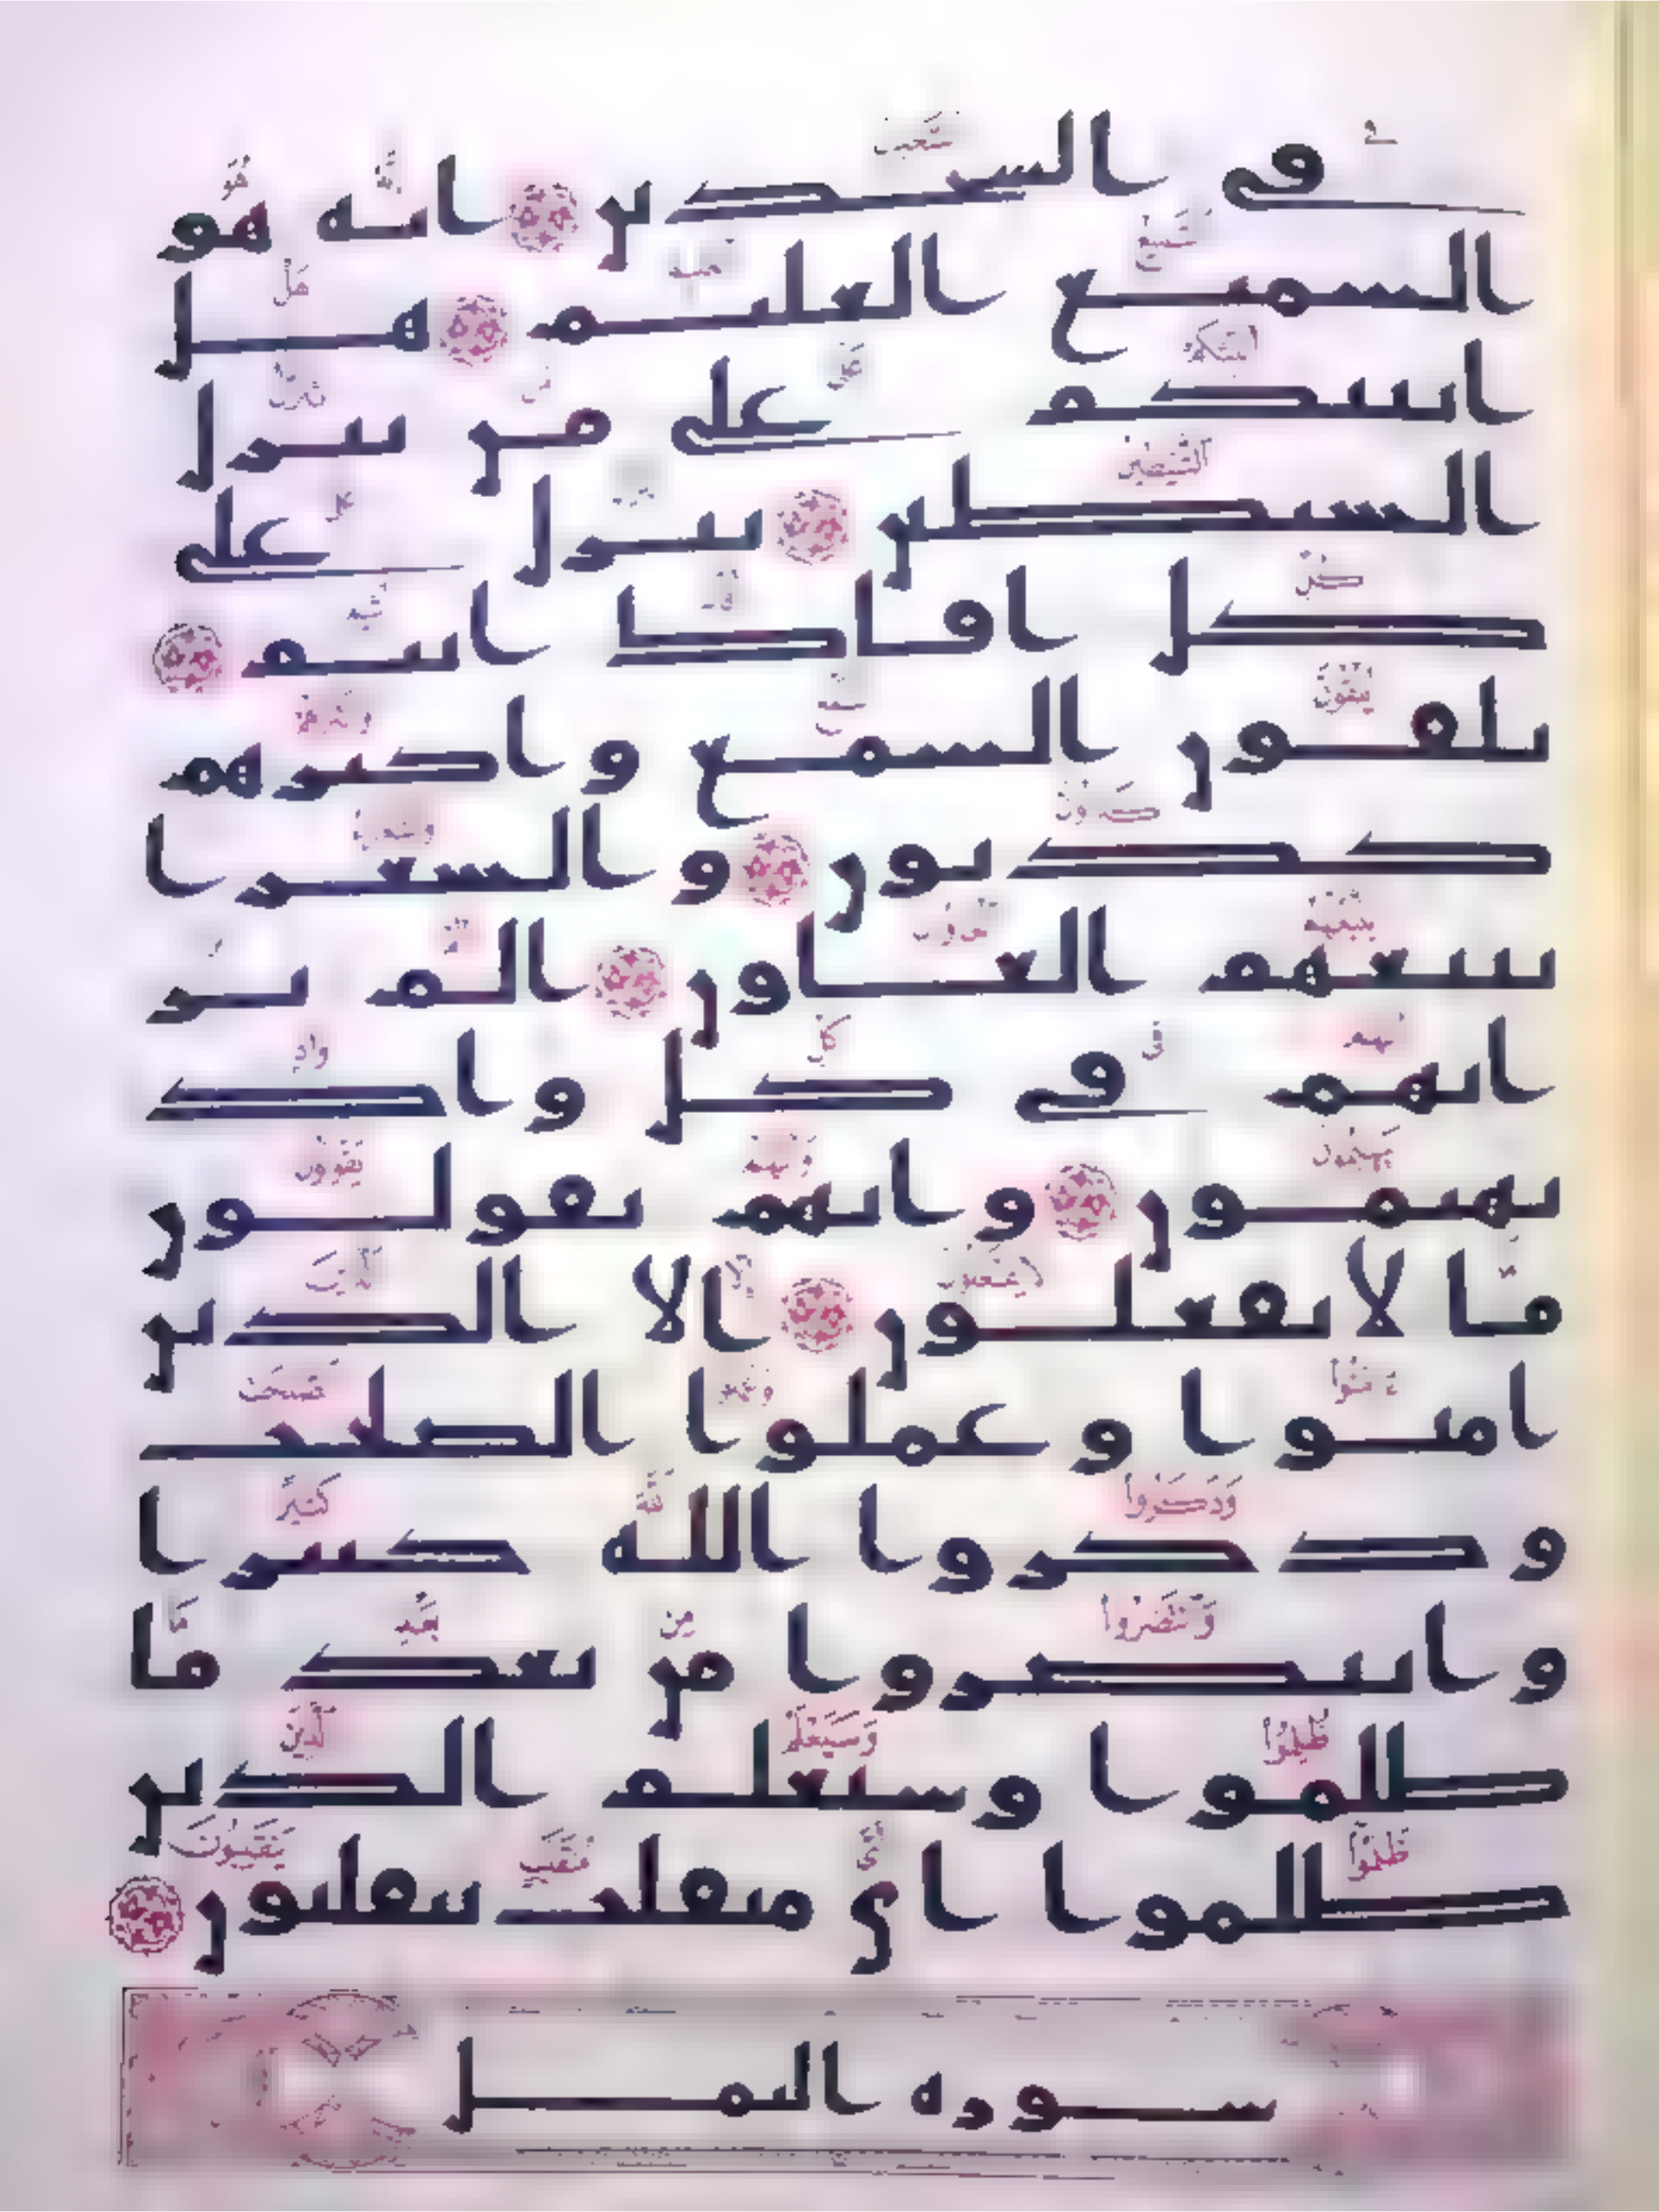 فى السجدين انه هو
السميع العليم هل
انبئكم على من تنزل
الشيطين تنزل على
كل افاك اثيم
يلقون السمع واكثرهم
كذبون والشعرا
يتبعهم الغاون الم تر
انهم فى كل واد
يهيمون وانهم يقولون
ما لا يفعلون الا الذين
امنوا وعملوا الصلحت
وذكروا الله كثيرا
وانتصروا من بعد ما
ظلموا وسيعلم الذين
ظلموا اي منقلب ينقلبون
سورة النمل